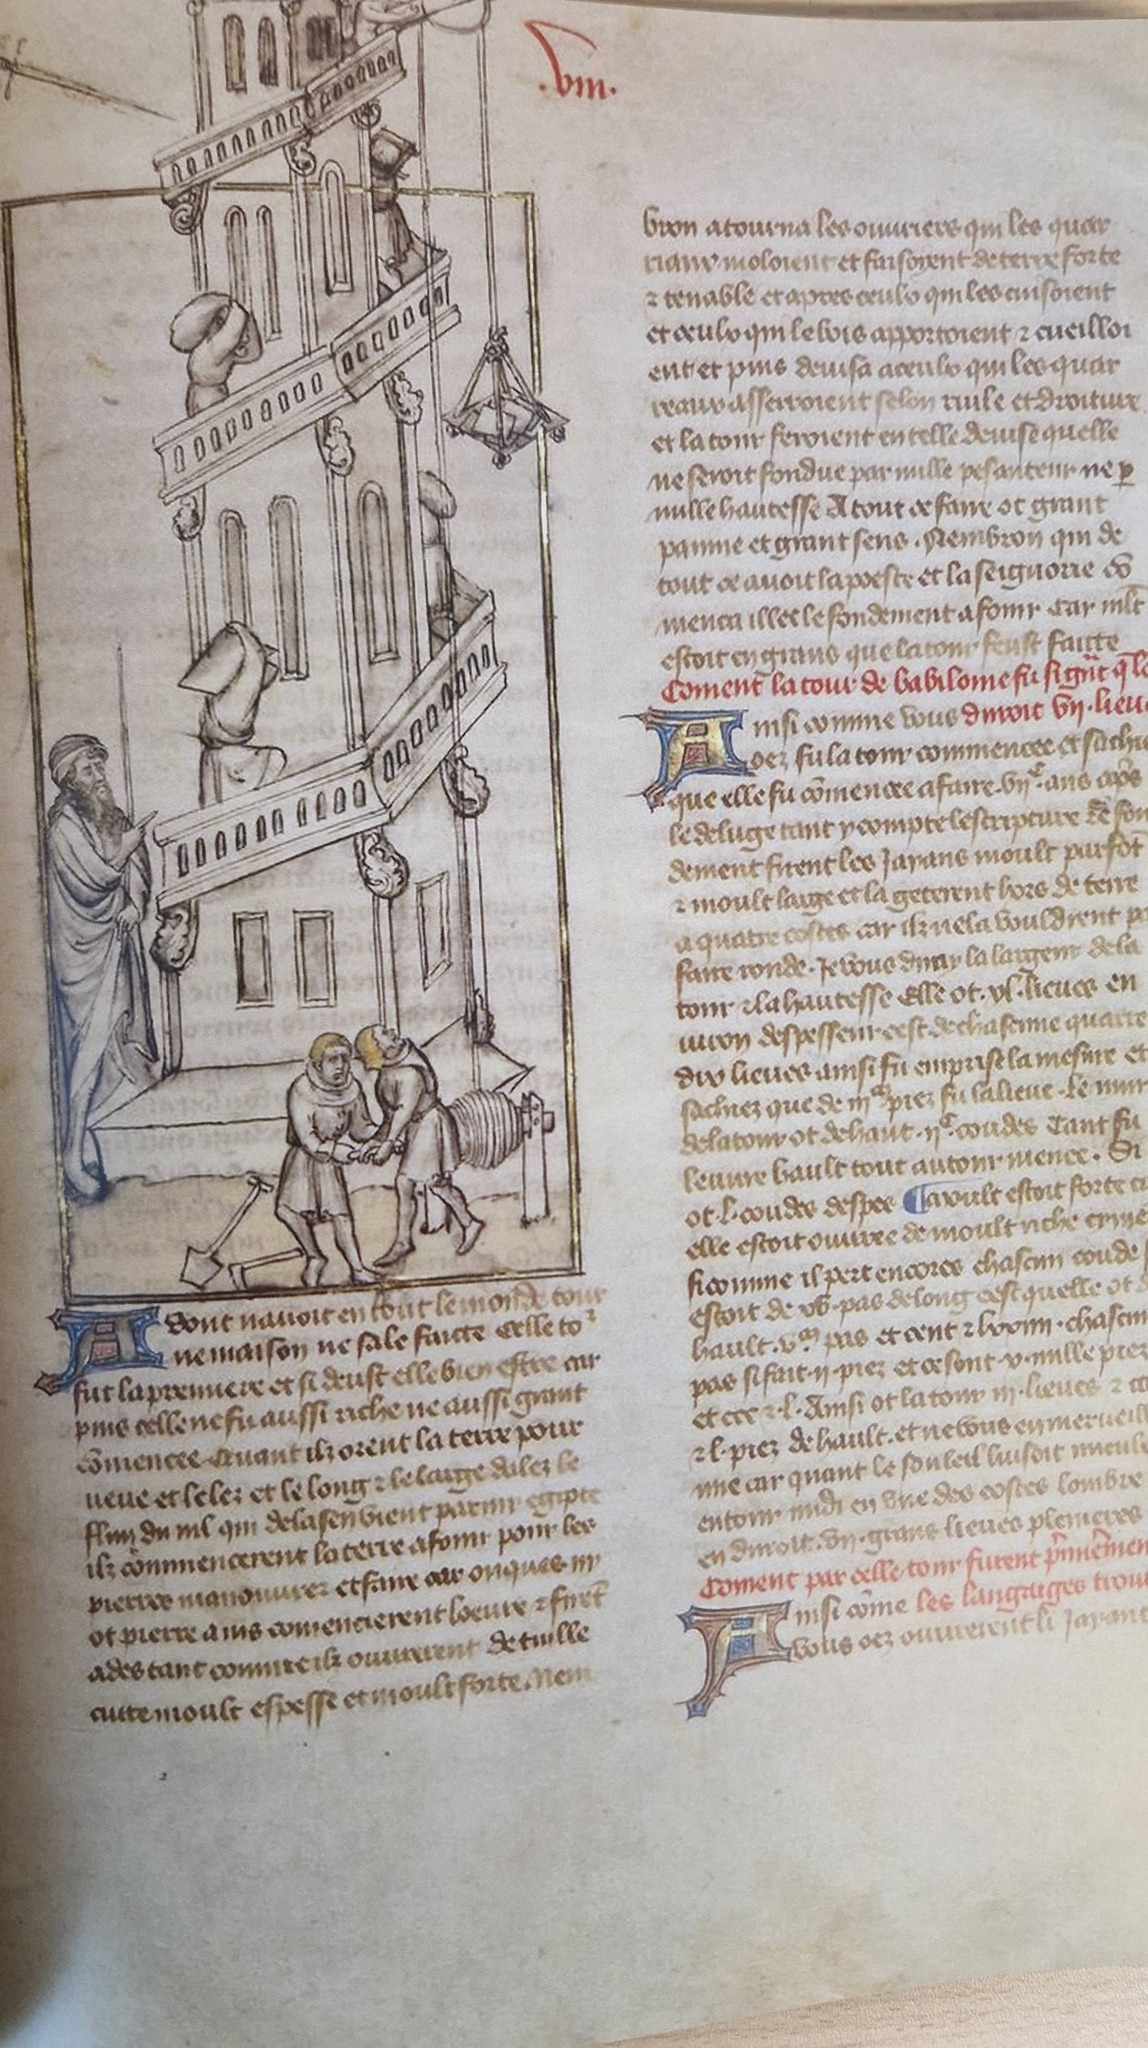 .viii.
A dont navoit en tout le monde tour
ne maison ne sale faicte Celle to2
fut la premiere et si deust elle bien estre car
puis celle ne fu aussi riche ne aussi grant
comencee Quant ilz orent la terre pour
veue et le lez et le long ⁊ le large dalez le
flun du nil qui de la sen vient parmy egipte
ilz commencerent la terre a fouir pour les
pierres manouvrer et faire car onques ny
ot pierre a ms comencierent loevre ⁊ firet
ades tant comme ilz ouvrerent de tuille
cuitte moult espesse et moult forte. Nem
bron atourna les ouvriers qui les quar
riaux moloient et faisoyent de terre forte
⁊ tenable et apres ceulx qui les cuisoient
et ceulx qui le bois apportoient ⁊ cueilloi
ent et puis devisa a ceulx qui les quar
reaux asserroient selon riule et droiture
et la tour feroient en telle devise quelle
ne seroit fondue par nulle pesanteur ne p
nulle hautesse A tout ce faire ot grant
painne et grant sens. Nembron qui de
tout ce avoit la poeste et la seignorie co
menca illec le fondement a fouir Car mlt
estoit en grans que la tour feust faicte
Coment la tour de babilome fu si g̃nt q̃ le
A insi comme vous duroit vij. lieu
oez fu la tour commencee et sachi
que elle fu comencee a faire. vijc. ans apres
le deluge tant y compte lescripture Le fon
dement firent les Jayans moult parfont
⁊ moult large et la geterent hors de terre
a quatre costes car ilz ne la vouldrent p
faire ronde. Je vous diray la largeur de la
tour ⁊ la hautesse Elle ot. xl. lieues en
viron despesseur cest de chascune quarre
dix lieues ainsi fu emprise la mesure et
sachiez que de piez fu la lieue. Le mur
de la tour ot de haut. ijc. coudes Tant fu
levure hault tout autour menee. Si
ot. l. coudes despes Moult estoit forte
elle estoit ouvree de moult riche cyme
si comme il pert encores chascun coude
estoit de pas de long cest quelle ot
hault. vm. pas et cent ⁊ lxxiiii. chascun
pas si fait. ij. piez et ce sont. v. mille piez
et ccc ⁊. l. Ainsi ot la tour iij. lieues ⁊ cc
⁊ l. piez de hault. et ne vous en merveill
mie car quant le souleil luisoit
entour midi en une des costes lombre
en duroit. vij. grans lieues plenieres
Coment par celle tour furent p̃mẽmen
A insi cõme les langaiges trou
vous oez ouvrerent li Jayant